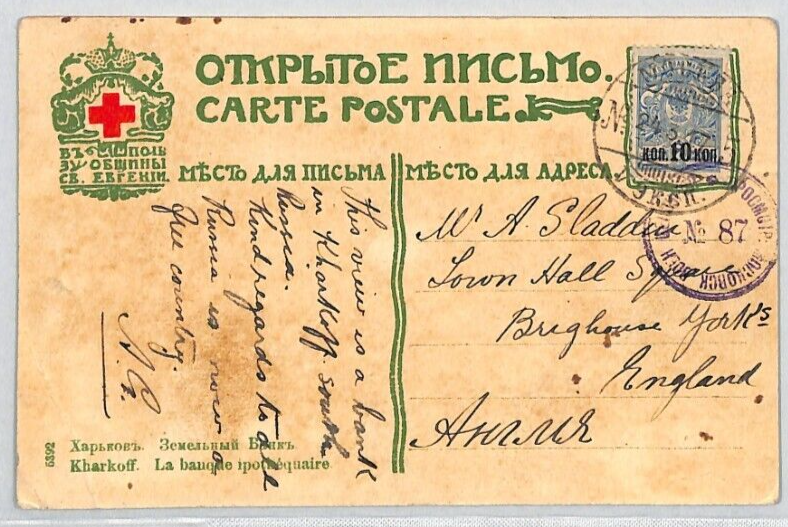 ОТКРЫТОЕ ПИСЬМО.
CARTE POSTALE.
ВЪ ПОЛЬ
ЗУ ОБЩИНЫ
СВ. ЕВГЕНІИ.
МѢСТО ДЛЯ ПИСЬМА
МѢСТО ДЛЯ АДРЕСА.
коп. 10 коп.
№ 87
This view is a bank
in Kharkoff. South
Russia.
Kind regards to all
Russia is now a
free country.
Mr A. Sladdin
Town Hall Square
Brighouse York's
England
Англия
5392
Харьковъ. Земельный Банкъ
Kharkoff. La banque ipothéquaire